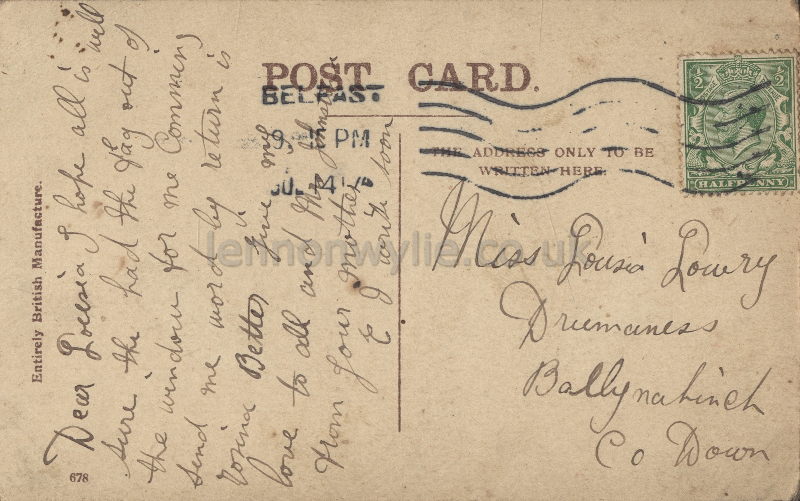 POST CARD.
BELFAST
9. PM
JUL 4 17
THE ADDRESS ONLY TO BE
WRITTEN HERE.
½ ½
HALFPENNY
Entirely British Manufacture.
678
Dear Louisia I hope all is well
sure the had the flag out of
the window for me Comming
send me word by return is
rosina Better give my
love to all and Mrs Johnston
from your mother
I write soon
Miss Lousia Lowry
Drumaness
Ballynahinch
Co Down
lennonwylie.co.uk